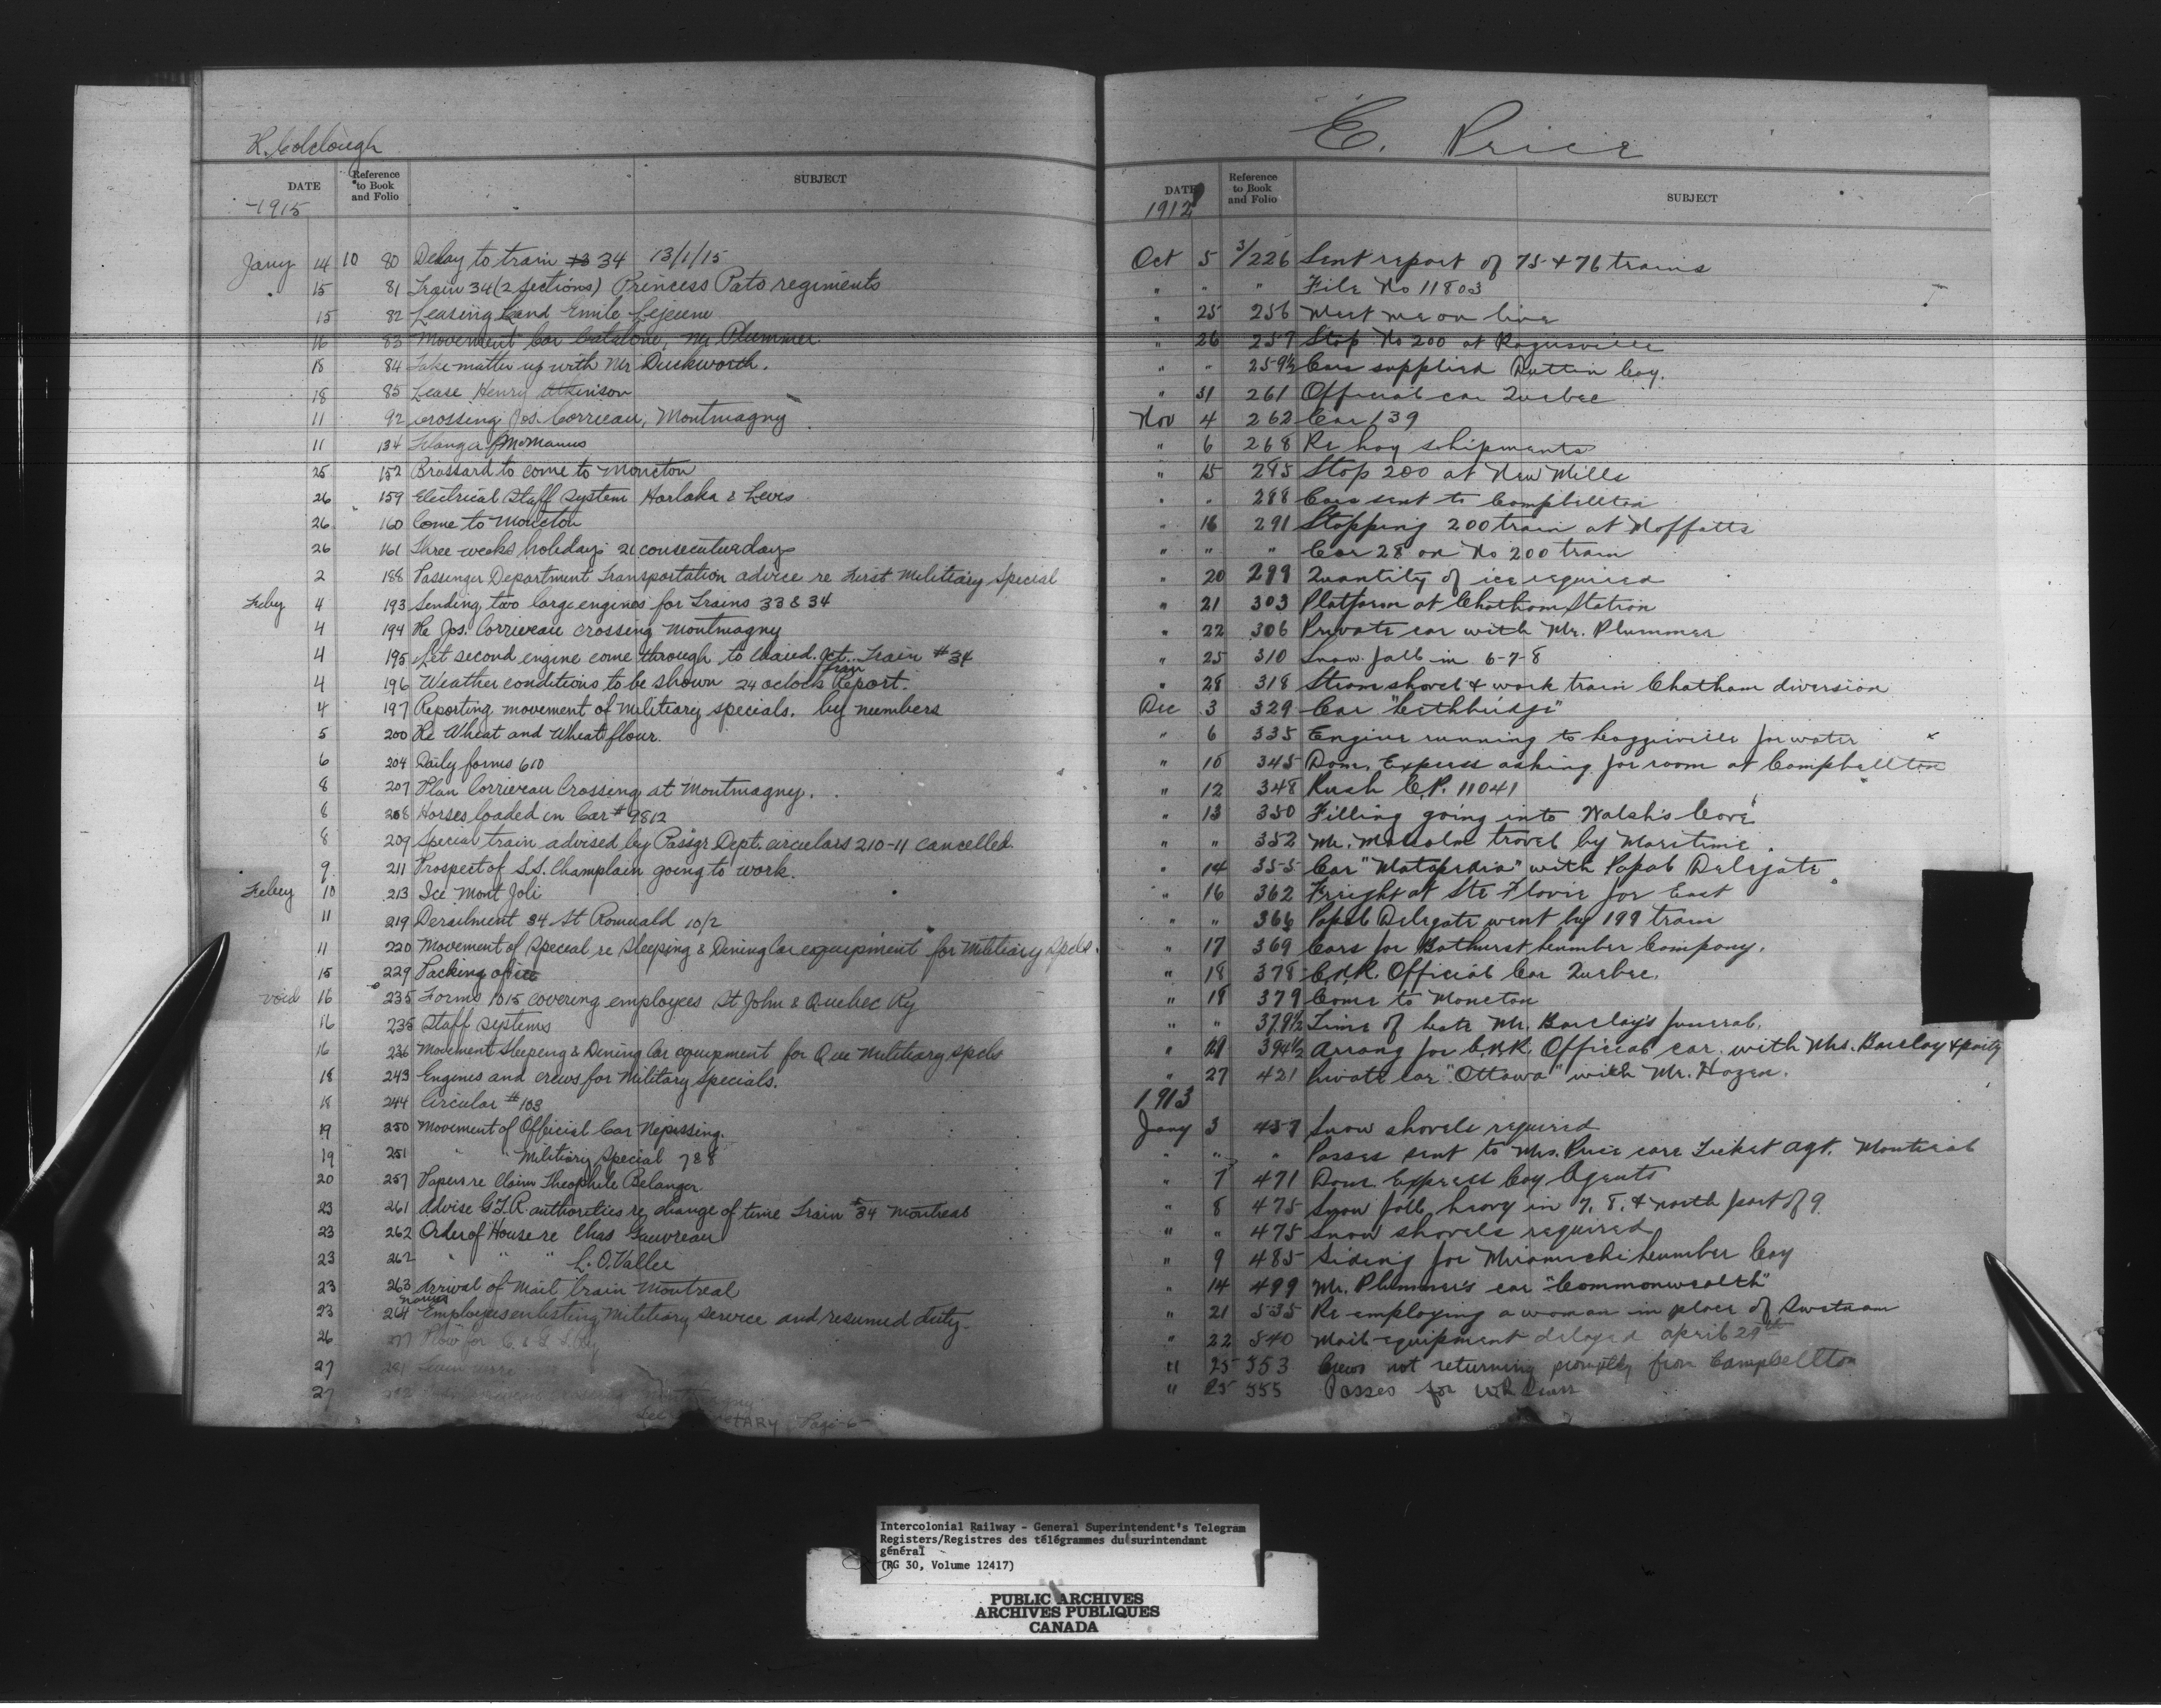 R. Colclough
DATE
Reference to Book and Folio
SUBJECT
1915
Jany 14 10 80 Delay to train 34 13/1/15
15 81 Train 34 (2 sections) Princess Pats regiments
15 82 Leasing Land Emile Lejeune
16 83 Movement Car Catalone, Mr Plummer
18 84 Take matter up with Mr Duckworth.
18 85 Lease Henry Atkinson
11 92 Crossing Jos. Corriveau, Montmagny
11 134 McManus
25 152 Brossard to come to Moncton
26 159 Electrical Staff System Harlaka & Levis
26 160 Come to Moncton
26 161 Three weeks holidays 21 consecutive days
2 188 Passenger Department Transportation advice re First Militiary Special
Feby 4 193 Sending two large engines for Trains 33 & 34
4 194 Re Jos. Corriveau crossing Montmagny
4 195 Let second engine come through to Chaud. Jct. Train #34
4 196 Weather conditions to be shown 24 oclock Train Report.
4 197 Reporting movement of Militiary specials. by numbers
5 200 Re Wheat and Wheat flour.
6 204 Daily forms 610
8 207 Plan Corriveau Crossing at Montmagny.
8 208 Horses loaded in Car # 9812
8 209 Special train advised by Passgr Dept. circulars 210-11 cancelled.
9 211 Prospect of S.S. Champlain going to work.
Feby 10 213 Ice Mont Joli
11 219 Derailment 34 St Romuald 10/2
11 220 Movement of Special re Sleeping & Dining Car equipment for Militiary Specls.
15 229 Packing of ice
void 16 235 Forms 1015 covering employees St John & Quebec Ry
16 235 Staff systems
16 236 Movement Sleeping & Dining Car equipment for Que Militiary spcls
18 243 Engines and crews for Military Specials.
18 244 Circular # 103
19 250 Movement of Official Car Nipissing.
19 251 " Militiary Special 788
20 257 Papers re claim Theophile Belanger
23 261 Advise G.T.R. authorities re change of time Train #34 Montreal
23 262 Order of House re Chas Gauvreau
23 262 " " " L. O. Vallee
23 263 Arrival of Mail train Montreal
23 264 Names Employees enlisting Militiary service and resumed duty.
26 277 Plow for
27
27
Page 6
E. Price
DATE
Reference to Book and Folio
SUBJECT
1912
Oct 5 3/226 Sent report of 75 & 76 trains
" " " File No 11803
" 25 256 Meet me on line
" 26 257 Stop No 200 at Rogersville
" " 259½ Cars supplied Dutten Coy.
" 31 261 Official car Quebec
Nov 4 262 Car 139
" 6 268 Re hay shipments
" 15 285 Stop 200 at New Mills
" " 288 Cars sent to Campbellton
" 16 291 Stopping 200 train at Moffatts
" " " Car 28 on No 200 train
" 20 299 Quantity of ice required
" 21 303 Platform at Chatham Station
" 22 306 Private car with Mr. Plummer
" 25 310 Snow fall in 6-7-8
" 28 318 Steam shovel & work train Chatham diversion
Dec 3 329 Car "Lethbridge"
" 6 335 Engine running to Loggieville for water
" 10 345 Dom. Express asking for room at Campbellton
" 12 348 Rush C.P. 11041
" 13 350 Filling going into Walsh's Cove
" " 352 Mr. Malcolm travel by Maritime.
" 14 355 Car "Matapedia" with Papal Delegate
" 16 362 Freight at Ste Flavie for East
" " 366 Papal Delegate went by 199 train
" 17 369 Cars for Bathurst Lumber Company.
" 18 378 C.N.R. Official Car Quebec.
" 18 379 Come to Moncton
" " 379½ Time of late Mr. Barclay's funeral.
" 21 394½ Arrang for C.N.R. Official car with Mrs. Barclay & party
" 27 421 Private car "Ottawa" with Mr. Hazen.
1913
Jany 3 457 Snow shovels required
" " " Passes sent to Mrs. Price care Ticket Agt. Montreal
" 7 471 Dom. Express Coy Agents
" 8 475 Snow fall heavy in 7, 8, & north part of 9.
" " 475 Snow shovels required
" 9 485 Siding for Miramichi Lumber Coy
" 14 499 Mr. Plummer's car "Commonwealth"
" 21 535 Re employing a woman in place of
" 22 540 Mail equipment delayed april 29th
" 25 553 Crews not returning promptly from Campbellton
" 25 555 Passes for
Intercolonial Railway - General Superintendent's Telegram
Registers/Registres des télégrammes du surintendant
général
(RG 30, Volume 12417)
PUBLIC ARCHIVES
ARCHIVES PUBLIQUES
CANADA